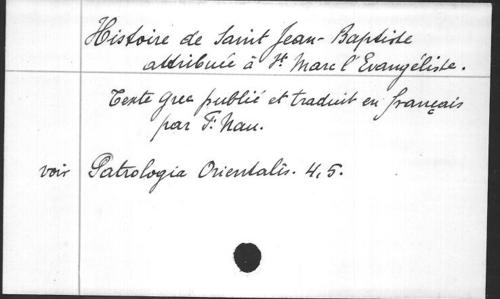 Histoire de Saint Jean-Baptiste
attribuée à St Marc l'Evangéliste.
Texte grec publié et traduit en français
par F. Nau.
voir Patrologia Orientalis. 4, 5.